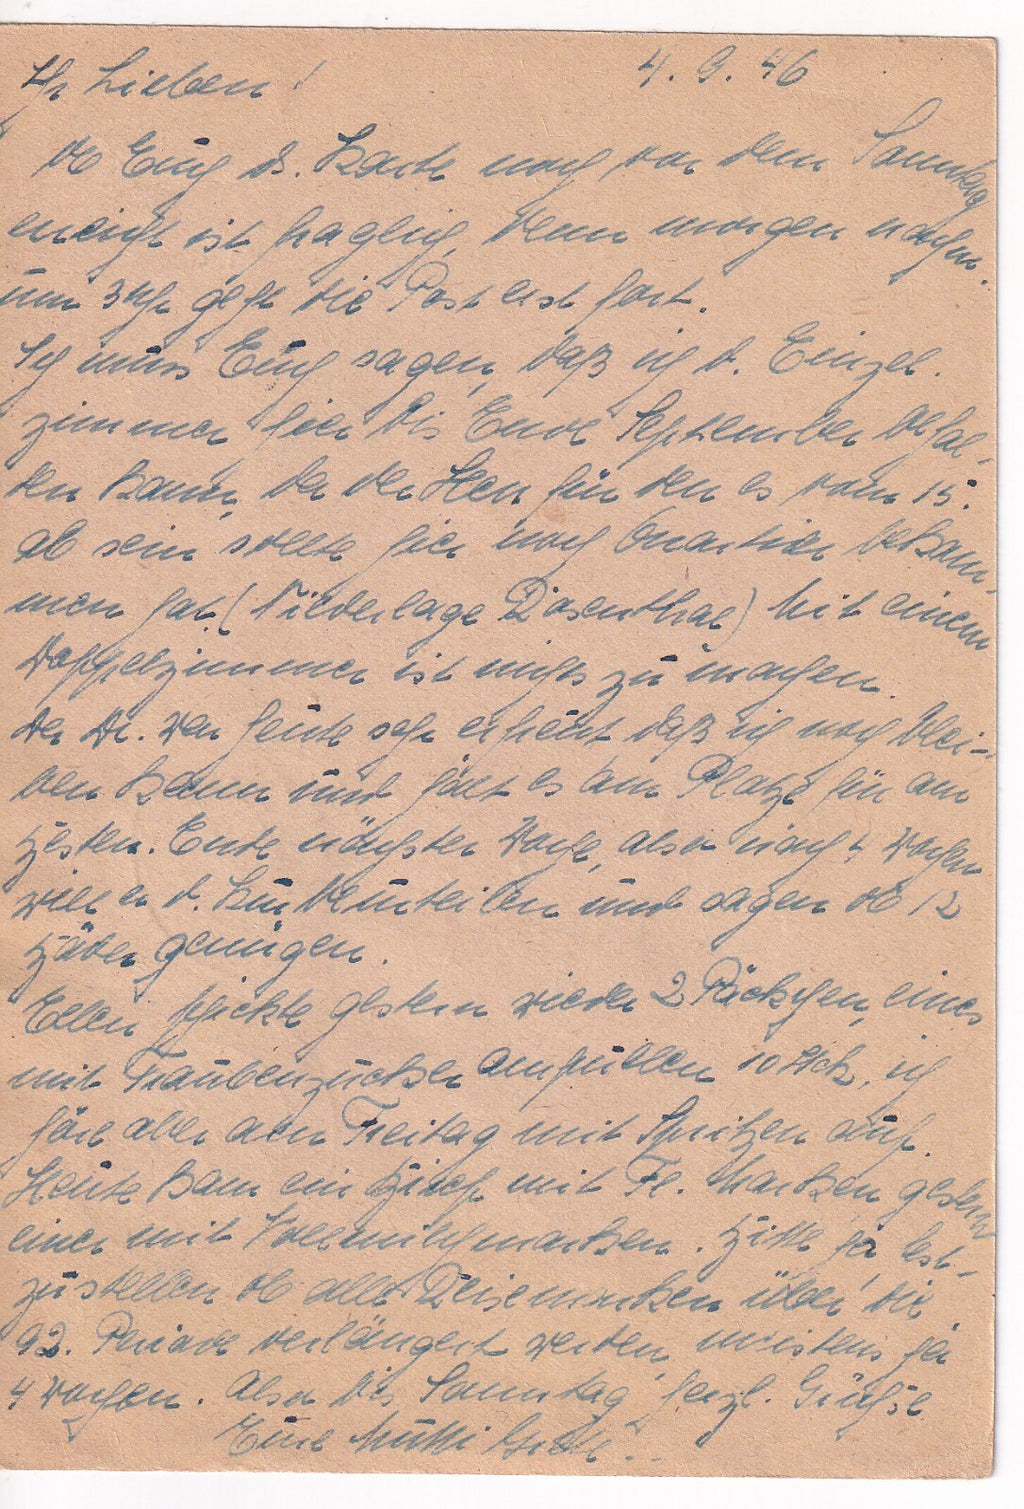 Ihr Lieben! 4.9.46
Ob Euch ds. Karte noch vor dem Sonntag
erreicht ist fraglich, denn morgen nachm.
um 3 Uhr geht die Post erst fort.
Ich muss Euch sagen, daß ich d. Einzel-
zimmer hier bis Ende September behal-
ten kann, da der Herr für den es vom 15.
ab sein sollte hier noch Quartier bekom-
men hat (Niederlage Rosenthal) Mit einem
Doppelzimmer ist nichts zu machen.
Der Dr. war heute sehr erfreut daß ich noch blei-
ben kann und hält es am Platze für am
besten. Ende nächster Woche, also nach 4 Wochen
will er d. Kur beurteilen und sagen ob 12
Bäder genügen.
Ellen schickte gestern wieder 2 Päckchen, eines
mit Traubenzucker ampullen 10 Stck, ich
höre aber am Freitag mit Spritzen auf.
Heute kam ein Brief mit Fl. Marken, gestern
einer mit Vollmilchmarken. Bitte
zustellen ob alle Reisemarken über die
92. Periode verlängert werden, meistens
4 Wochen. Also bis Sonntag herzl. Grüße
Eure Mutti